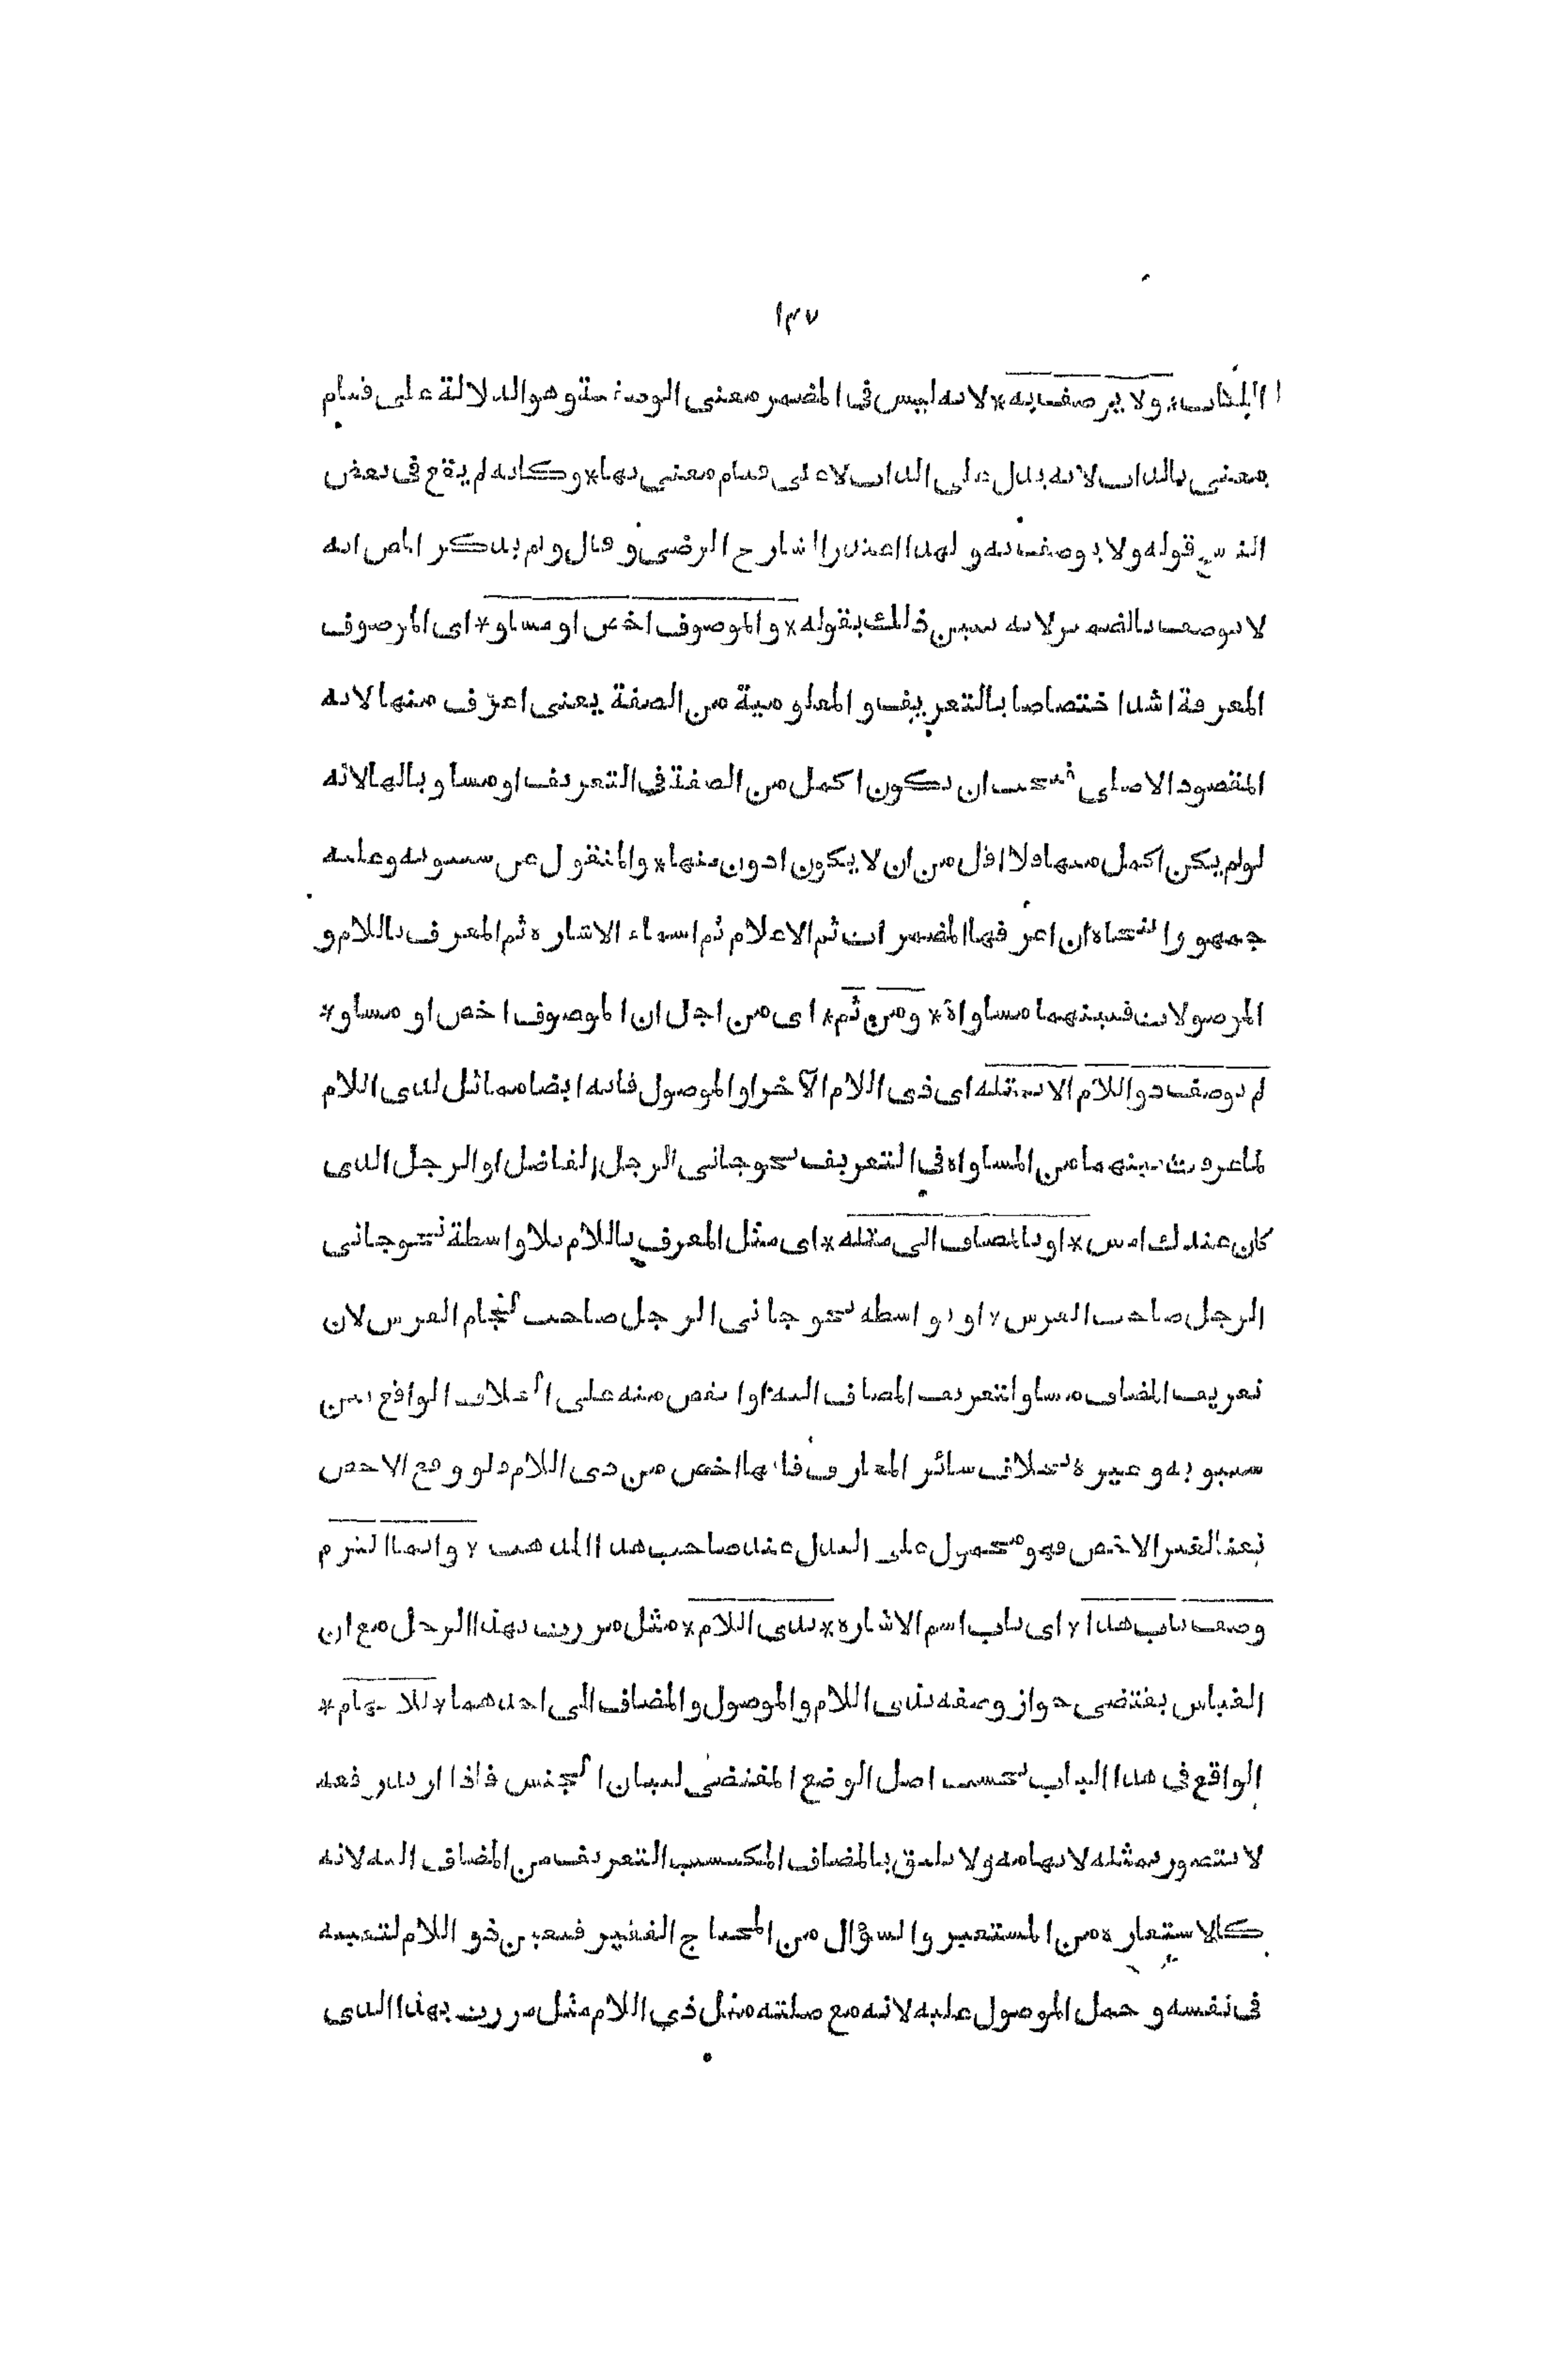 ١٣٧
الباب * ولا يوصف به * لانه ليس فى المضمر معنى الوصفية وهو الدلالة على قيام
معنى بالذات لانه يدل على الذات لا على قيام معنى بها * وكانه لم يقع فى بعض
النسخ قوله ولا يوصف به ولهذا اعتذر الشارح الرضى وقال ولم يذكر المص انه
لا يوصف بالضمير لانه سيبين ذلك بقوله * والموصوف اخص او مساو * اى الموصوف
المعرفة اشد اختصاصا بالتعريف والمعلومية من الصفة يعنى اعرف منها لانه
المقصود الاصلى فيجب ان يكون اكمل من الصفة فى التعريف او مساويا لها لانه
لو لم يكن اكمل منها فلا اقل من ان لا يكون ادون منها * والمنقول عن سيبويه وعليه
جمهور النحاة ان اعرفها المضمرات ثم الاعلام ثم اسماء الاشاره ثم المعرف باللام و
الموصولات فبينهما مساواة * ومن ثم * اى من اجل ان الموصوف اخص او مساو *
لم يوصف ذو اللام الا بمثله اى ذى اللام الآخر او الموصول فانه ايضا مماثل لذى اللام
لما عرفت بينهما من المساواه فى التعريف نحو جانى الرجل الفاضل او الرجل الذى
كان عندك امس * او بالمضاف الى مثله * اى مثل المعرف باللام بلا واسطة نحو جانى
الرجل صاحب الفرس * او بواسطه نحو جانى الرجل صاحب لجام الفرس لان
تعريف المضاف مساو لتعريف المضاف اليه او انقص منه على الخلاف الواقع بين
سيبويه وغيره بخلاف سائر المعارف فانها اخص من ذى اللام فلو وقع الاخص
نعتا لغير الاخص فهو محمول على البدل عند صاحب هذا المذهب * وانما التزم
وصف باب هذا * اى باب اسم الاشاره * بذى اللام * مثل مررت بهذا الرجل مع ان
القياس يقتضى جواز وصفه بذى اللام والموصول والمضاف الى احدهما * للابهام *
الواقع فى هذا الباب بحسب اصل الوضع المقتضى لبيان الجنس فاذا اريد رفعه
لا يتصور بمثله لابهامه ولا يليق بالمضاف المكتسب التعريف من المضاف اليه لانه
كالاستعاره من المستعير والسؤال من المحتاج الفقير فتعين ذو اللام لتعينه
فى نفسه وحمل الموصول عليه لانه مع صلته مثل ذى اللام مثل مررت بهذا الذى